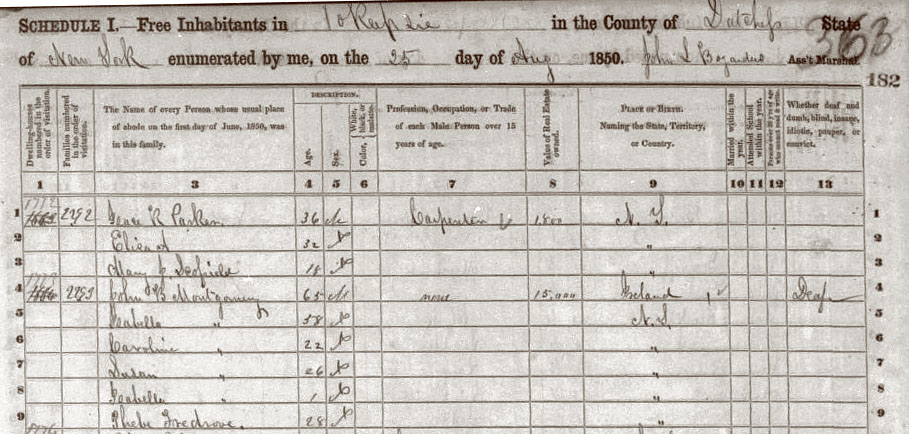 SCHEDULE I.—Free Inhabitants in Po'Kepsie in the County of Dutchess State 363
of New York enumerated by me, on the 25 day of Aug 1850. John S Bogardus Ass't Marshal.
182
Dwelling-houses numbered in the order of visitation.
Families numbered in the order of visitation.
The Name of every Person whose usual place of abode on the first day of June, 1850, was in this family.
DESCRIPTION.
Age.
Sex.
Color, White, black, or mulatto.
Profession, Occupation, or Trade of each Male Person over 15 years of age.
Value of Real Estate owned.
PLACE OF BIRTH. Naming the State, Territory, or Country.
Married within the year.
Attended School within the year.
Persons over 20 y'rs of age who cannot read & write.
Whether deaf and dumb, blind, insane, idiotic, pauper, or convict.
1 3 4 5 6 7 8 9 10 11 12 13
1 2292 Isaac R Parker 36 M Carpenter 1800 N.Y. 1
2 Eliza 32 F " 2
3 Mary Scofield 18 F " 3
4 2293 John B Montgomery 65 M none 15,000 Ireland 1 Deaf 4
5 Isabella " 58 F N.Y. 5
6 Caroline " 22 F " 6
7 Susan " 26 F " 7
8 Isabella " 1 F " 8
9 Phebe 28 F " 9